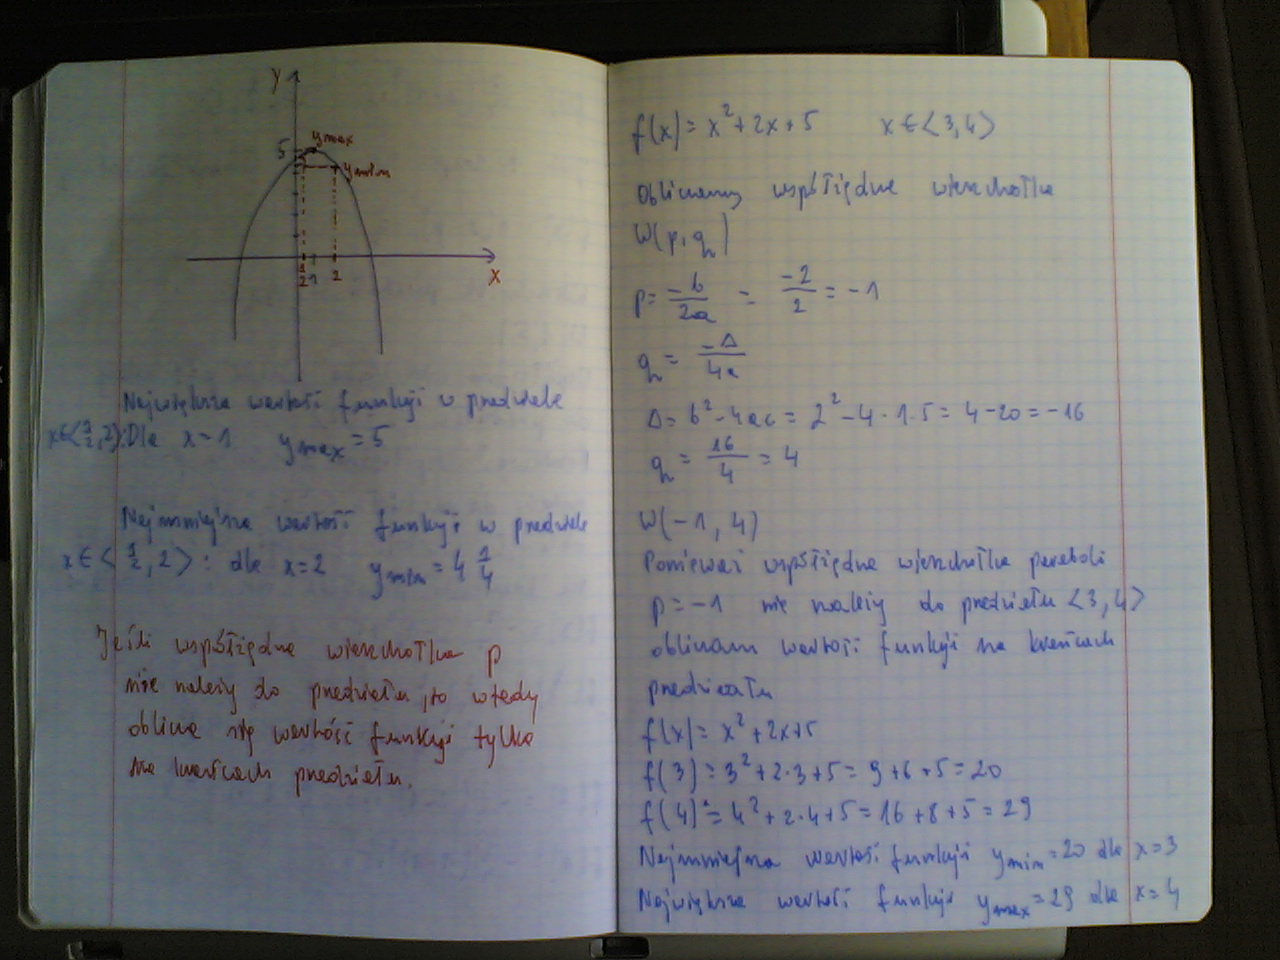 y
5
ymax
ymin
1/2 1 2
x
Największa wartość funkcji w przedziale
x∈⟨1/2,2⟩: Dla x=1 ymax=5
Najmniejsza wartość funkcji w przedziale
x∈⟨1/2,2⟩: dla x=2 ymin=4 1/4
Jeśli współrzędna wierzchołka p
nie należy do przedziału, to wtedy
oblicza się wartość funkcji tylko
na krańcach przedziału.
f(x)=x²+2x+5 x∈⟨3,4⟩
Obliczamy współrzędne wierzchołka
W(p,q)
p=-b/2a = -2/2=-1
q=-Δ/4a
Δ=b²-4ac=2²-4·1·5=4-20=-16
q=16/4=4
W(-1,4)
Ponieważ współrzędna wierzchołka paraboli
p=-1 nie należy do przedziału ⟨3,4⟩
obliczam wartość funkcji na krańcach
przedziału
f(x)=x²+2x+5
f(3)=3²+2·3+5=9+6+5=20
f(4)=4²+2·4+5=16+8+5=29
Najmniejsza wartość funkcji ymin=20 dla x=3
Największa wartość funkcji ymax=29 dla x=4